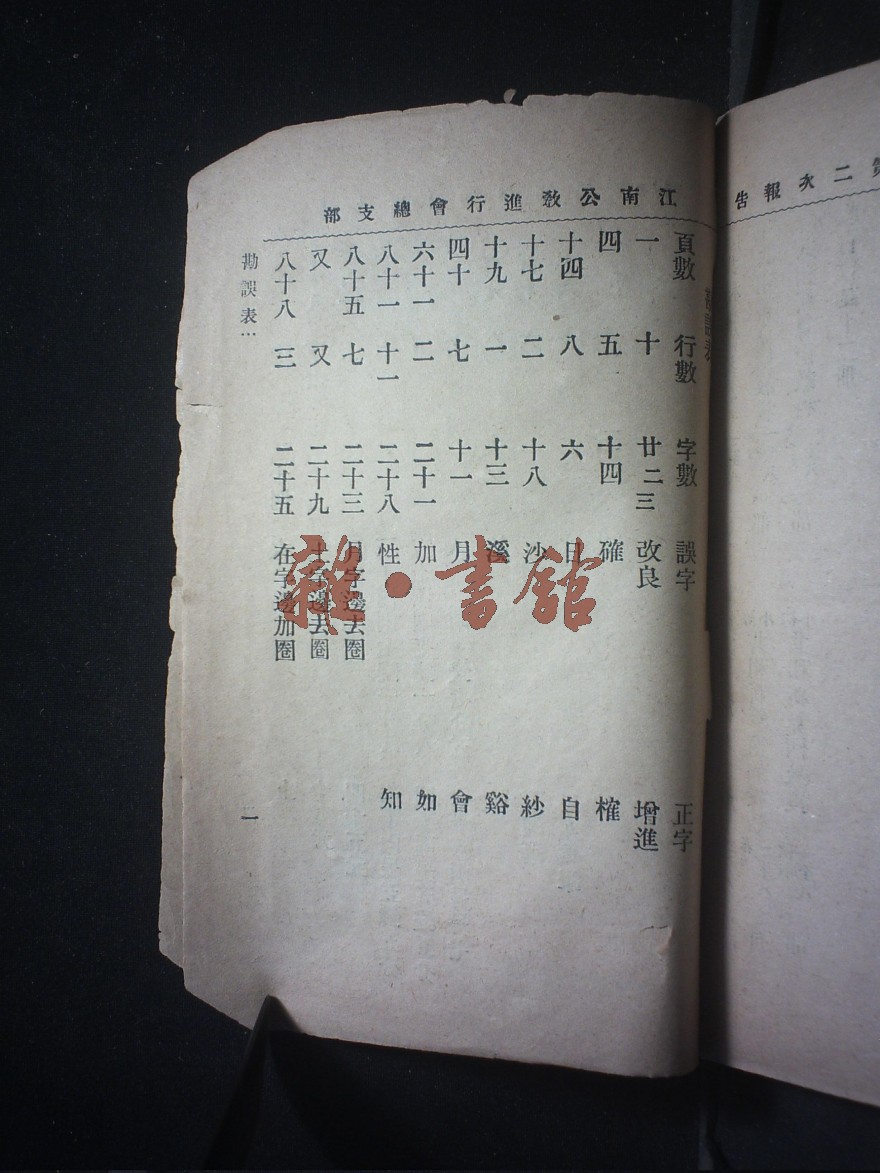 江南公教進行會總支部
二次報告
勘誤表
頁數 行數 字數 誤字 正字
一 十 廿二三 改良 增進
四 五 十四 確 榷
十四 八 六 日 自
十七 二 十八 沙 紗
十九 一 十三 溪 谿
四十 七 十一 月 會
六十一 二 二十一 加 如
八十一 十一 二十八 性 知
八十五 七 二十三 月字邊去圈
又 又 二十九 字邊去圈
八十八 三 二十五 在字邊加圈
勘誤表… 一
雜·書館